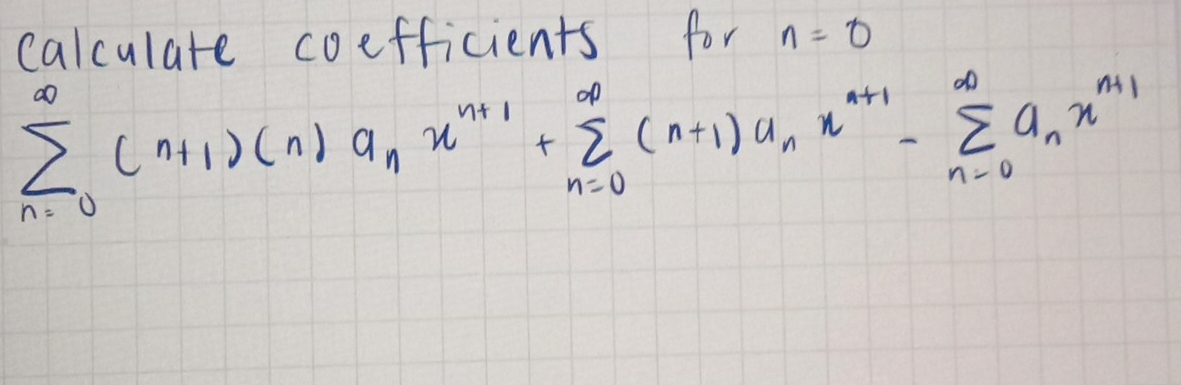 Calculate coefficients for n = 0
∞ ∞ ∞
∑ (n+1)(n) aₙ xⁿ⁺¹ + ∑ (n+1) aₙ xⁿ⁺¹ - ∑ aₙ xⁿ⁺¹
n = 0 n = 0 n = 0